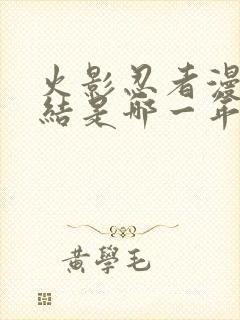 火影忍者漫
結是哪一年
黃學毛